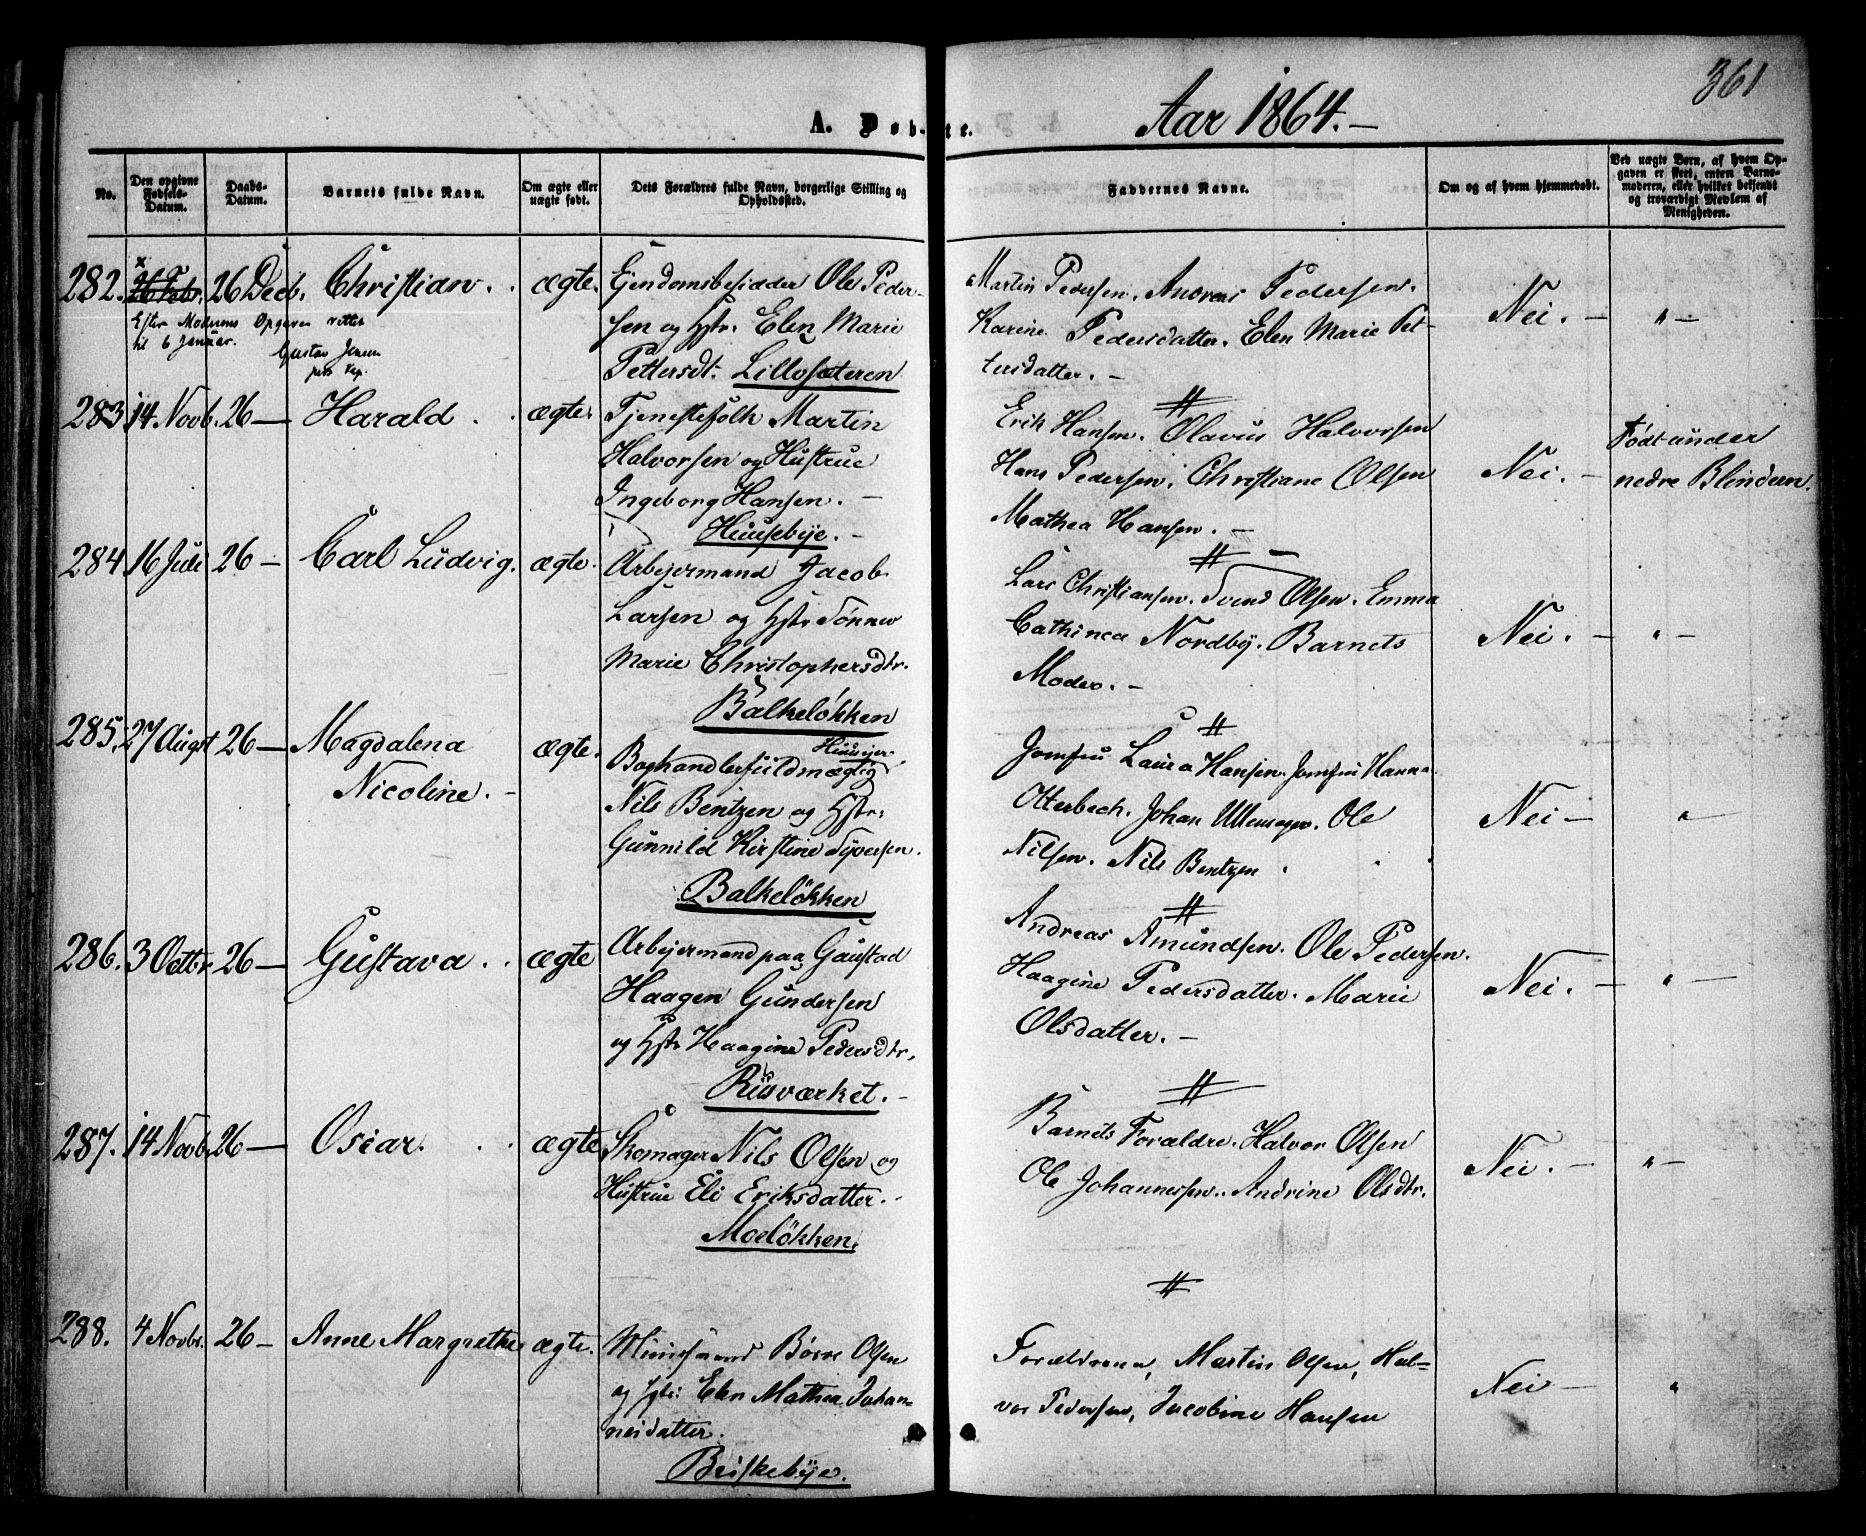 361
A. Døb-te.
Aar 1864.-
No.
Den opgivne Fødsels-Datum.
Daabs-Datum.
Barnets fulde Navn.
Om ægte eller uægte født.
Dets Forældres fulde Navn, borgerlige Stilling og Opholdssted.
Faddernes Navne.
Om og af hvem hjemmedøbt.
Ved uægte Børn, af hvem Opgaven er skeet, enten Barnemoderen, eller hvilket bekjendt og troværdigt Medlem af Menigheden.
282. 26 Feb. 26 Decb. Christian. ægte.
Efter Moderens Opgave rettet
til 6 Januar.
Gustav Jensen
pers. Kap.
Ejendomsbesidder Ole Peder-
sen og Hstr. Elen Marie
Pettersdt. Lillosæteren
Martin Pedersen. Andreas Pedersen.
Karine Pedersdatter. Elen Marie Pet-
tersdatter. -
Nei. - " -
283 14 Novb. 26 - Harald. ægte.
Tjenestefolk Martin
Halvorsen og Hustrue
Ingeborg Hansen. -
Huusebye. -
Erik Hansen. Olavus Halvorsen
Hans Pedersen. Christiane Olsen
Mathea Hansen. -
Nei. -
Født under
nedre Blindern.
284 16 Juli 26 - Carl Ludvig. ægte.
Arbejermand Jacob
Larsen og Hstr. Tønner
Marie Christophersdtr.
Balkeløkken
Lars Christiansen. Svend Olsen. Emma
Cathinca Nordby. Barnets
Moder. -
Nei. - " -
285. 27 Augst 26 - Magdalena
Nicoline. - ægte.
Boghandlerfuldmægtig
Nils Bentzen og Hstr.
Gunnild Kirstine Syversen.
Balkeløkken
Jomfru Laura Hansen. Jomfru Hanna
Otterbech. Johan Ullensager. Ole
Nilsen. Nils Bentzen
Nei - "
286. 3 Octbr. 26 - Gustava. ægte
Arbejermand paa Gaustad
Haagen Gundersen
og Hstr. Haagine Pedersdtr.
Riisværket. -
Andreas Amundsen. Ole Pedersen.
Haagine Pedersdatter. Marie
Olsdatter. -
Nei. - " -
287. 14 Novb. 26 - Oscar. ægte
Skomager Nils Olsen og
Hustrue Eli Eriksdatter. -
Moeløkken.
Barnets Forældre. Halvor Olsen
Ole Johannessen. Andrine Olsdtr.
Nei. - " -
288. 4 Novbr. 26 - Anne Margrethe ægte.
Muursmand Børre Olsen
og Hstr: Elen Mathea Johan-
nesdatter.
Briskebye.
Forældrene, Martin Olsen, Hal-
vor Pedersen, Jacobine Hansen
Nei - "